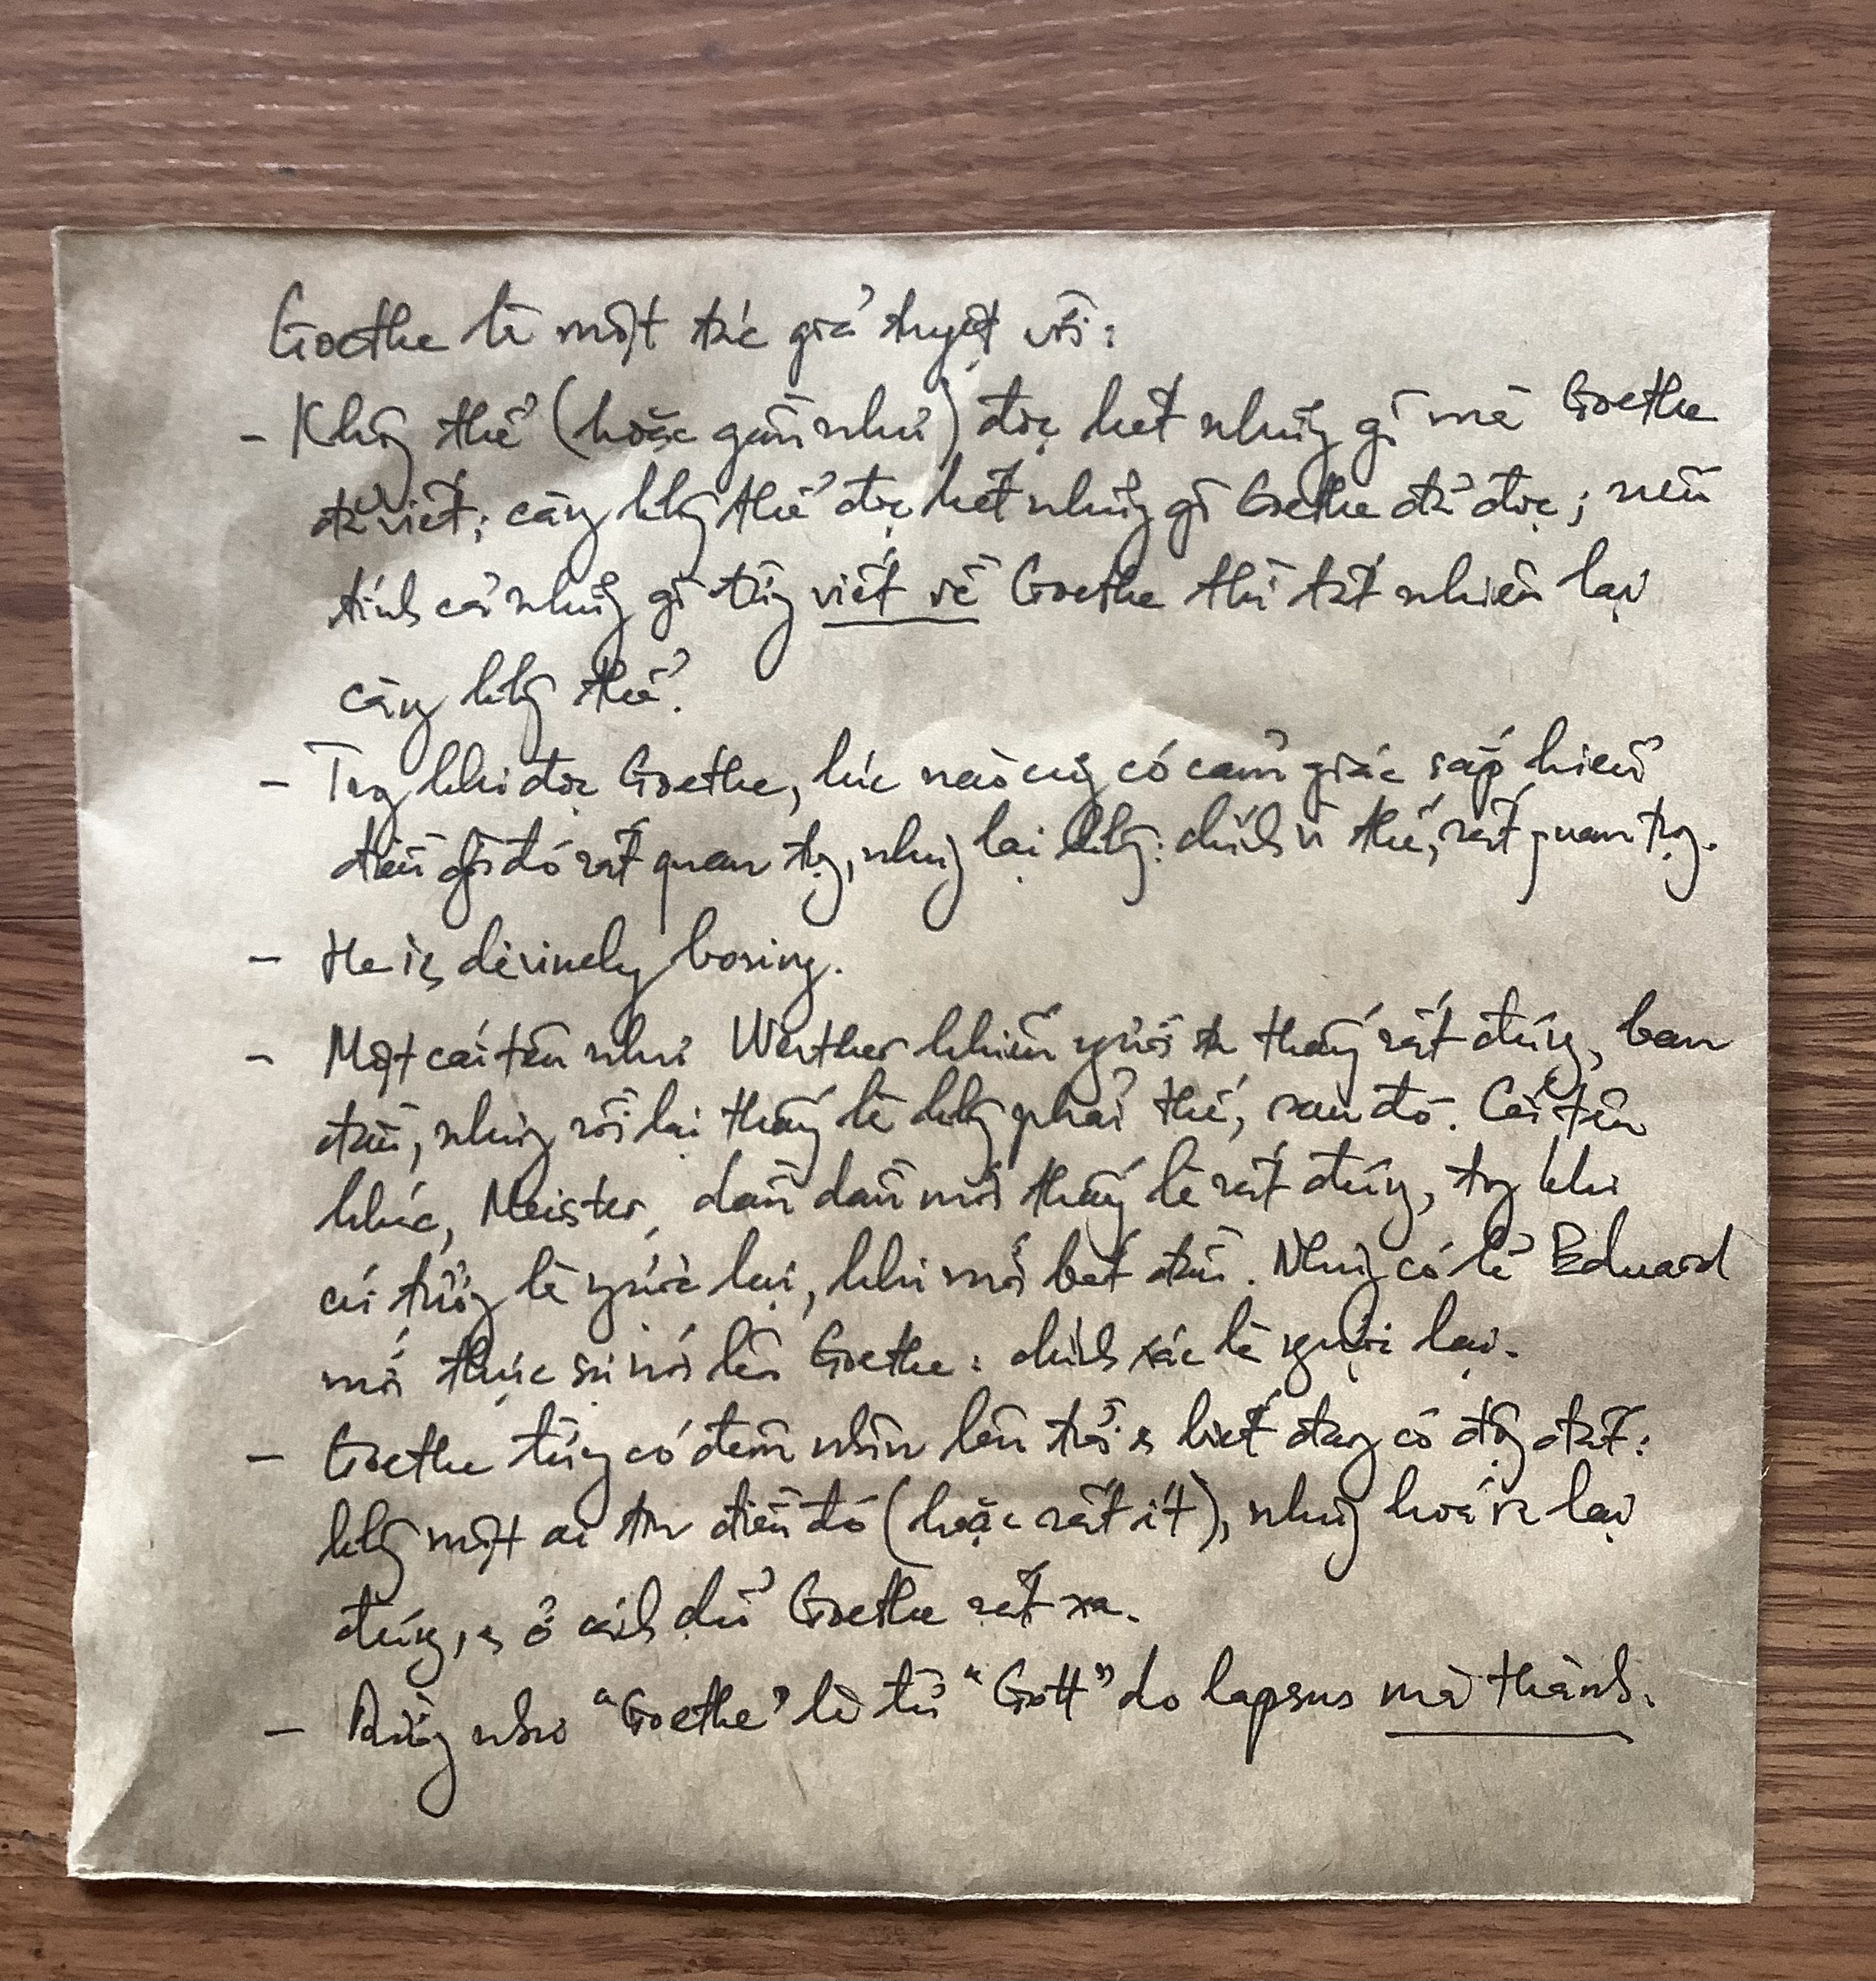 Goethe là một tác giả tuyệt vời:
- Không thể (hoặc gần như) đọc hết những gì mà Goethe
đã viết; càng không thể đọc hết những gì Goethe đã đọc; nếu
tính cả những gì từng viết về Goethe thì tất nhiên lại
càng không thể.
- Trong khi đọc Goethe, lúc nào cũng có cảm giác sắp hiểu
điều gì đó rất quan trọng, nhưng lại không: chính vì thế, rất quan trọng.
- He is divinely boring.
- Một cái tên như Werther khiến người ta thấy rất đúng, ban
đầu, nhưng rồi lại thấy là không phải thế, sau đó. Cái tên
khác, Meister, dần dần mới thấy là rất đúng, trong khi
cứ tưởng là ngược lại, khi mới bắt đầu. Nhưng có lẽ Eduard
mới thực sự nói lên Goethe: chính xác là ngược lại.
- Goethe từng có đêm nhìn lên trời & biết đang có động đất:
không một ai tin điều đó (hoặc rất ít), nhưng hoá ra lại
đúng, & ở cách chỗ Goethe rất xa.
- Dường như "Goethe" là từ "Gott" do lapsus mà thành.